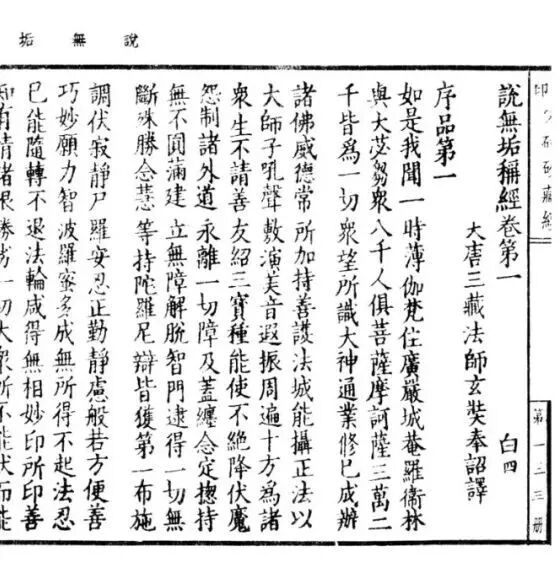 說無垢
印 磧砂藏經
第一三三册
說無垢稱經卷第一
白四
大唐三藏法師玄奘奉詔譯
序品第一
如是我聞一時薄伽梵住廣嚴城菴羅衞林
與大苾芻衆八千人俱菩薩摩訶薩三萬二
千皆爲一切衆望所識大神通業修已成辦
諸佛威德常所加持善護法城能攝正法以
大師子吼聲敷演美音遐振周遍十方爲諸
衆生不請善友紹三寶種能使不絶降伏魔
怨制諸外道永離一切障及蓋纏念定揔持
無不圓滿建立無障解脫智門逮得一切無
斷殊勝念慧等持陀羅尼辯皆獲第一布施
調伏寂靜尸羅安忍正勤靜慮般若方便善
巧妙願力智波羅蜜多成無所得不起法忍
已能隨轉不退法輪咸得無相妙印所印善
知有情諸根勝劣一切大衆所不能伏而能